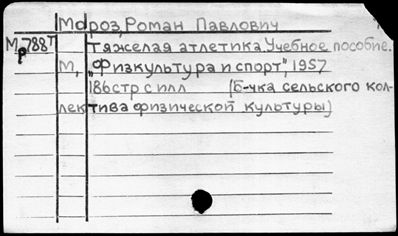 Мороз, Роман Павлович
М788т Тяжелая атлетика. Учебное пособие.
М, „Физкультура и спорт", 1957
186 стр с илл (Б-чка сельского кол-
лектива физической культуры)